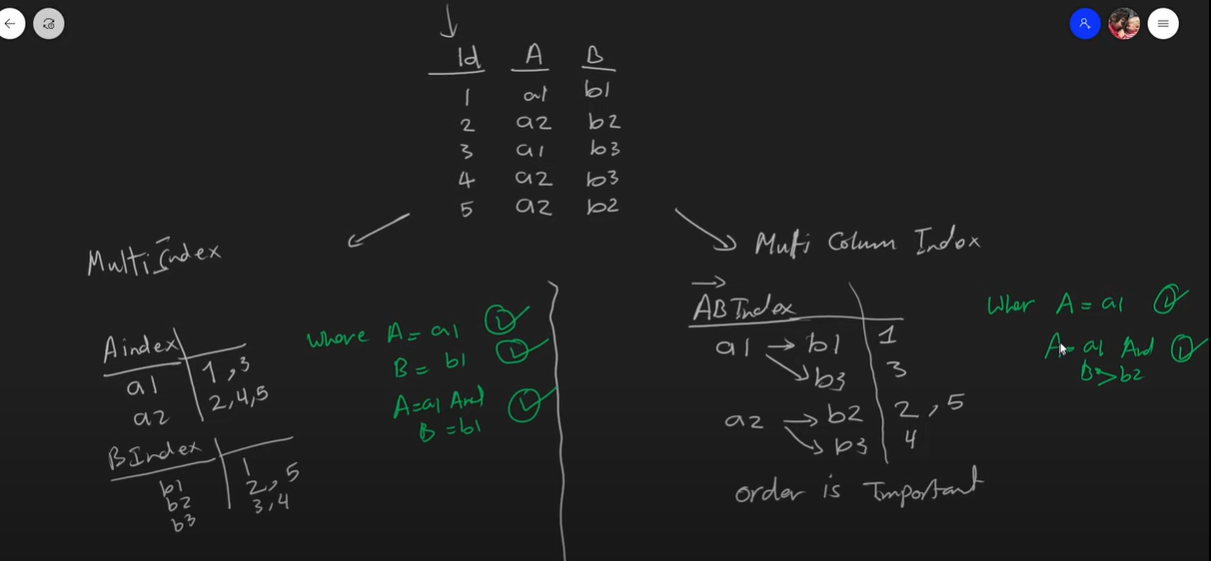 Id A B
1 a1 b1
2 a2 b2
3 a1 b3
4 a2 b3
5 a2 b2
Multi Index
A index
a1 1, 3
a2 2, 4, 5
B Index
b1 1
b2 2, 5
b3 3, 4
where A = a1
B = b1
A = a1 And
B = b1
Multi Column Index
AB Index
a1 → b1 1
b3 3
a2 → b2 2, 5
b3 4
order is Important
Wher A = a1
A = a1 And
B > b2